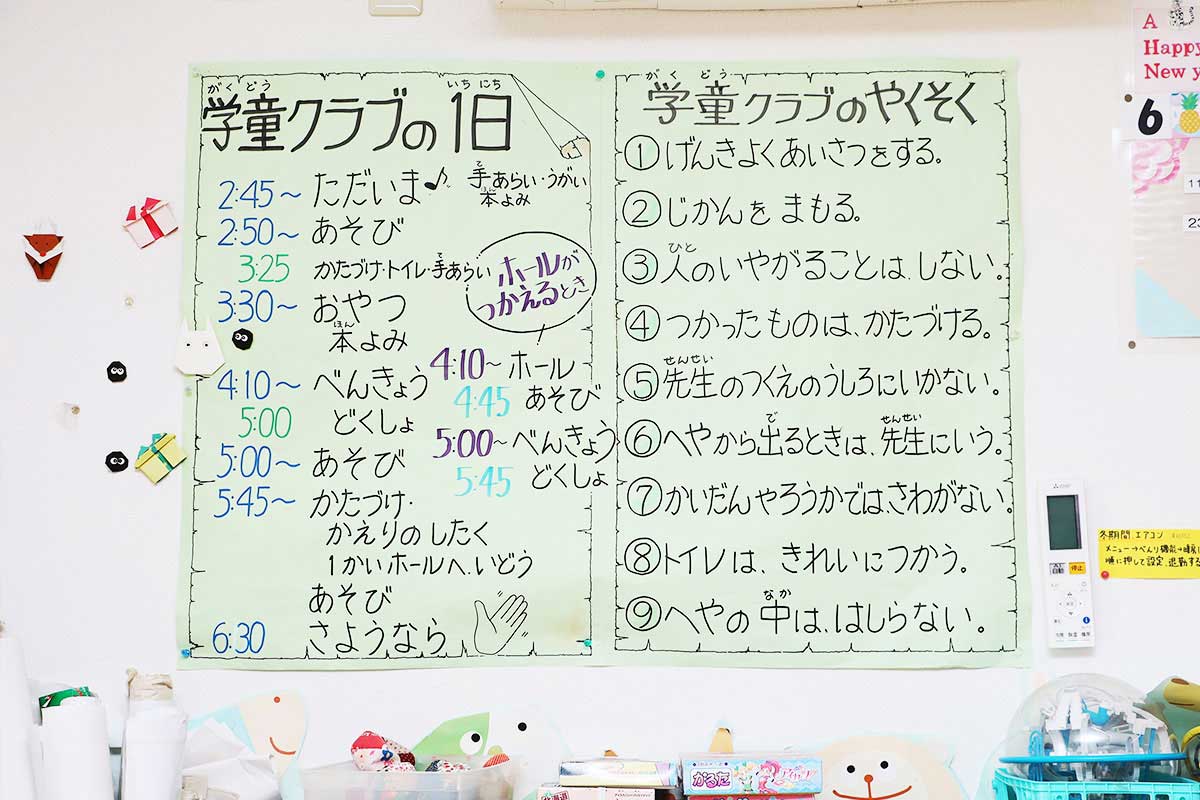 学童クラブの1日
がくどう いちにち
2:45～ ただいま♪ 手あらい・うがい
て
本よみ
ほん
2:50～ あそび
3:25 かたづけ・トイレ・手あらい
て
3:30～ おやつ
本よみ
ほん
4:10～ べんきょう
5:00 どくしょ
5:00～ あそび
5:45～ かたづけ・
かえりのしたく
1かいホールへ、いどう
あそび
6:30 さようなら
ホールが
つかえるとき
4:10～ ホール
4:45 あそび
5:00～ べんきょう
5:45 どくしょ
学童クラブのやくそく
がくどう
①げんきよくあいさつをする。
②じかんを まもる。
③人のいやがることは、しない。
ひと
④つかったものは、かたづける。
⑤先生のつくえのうしろにいかない。
せんせい
⑥へやから出るときは、先生にいう。
で せんせい
⑦かいだんやろうかでは、さわがない。
⑧トイレは、きれいにつかう。
⑨へやの中は、はしらない。
なか
A
Happy
New y
6
11
23
冬期間 エアコン
メニュー→べんり機能→暖房
順に押して設定、退勤する
自動 停止
かるた
北海道